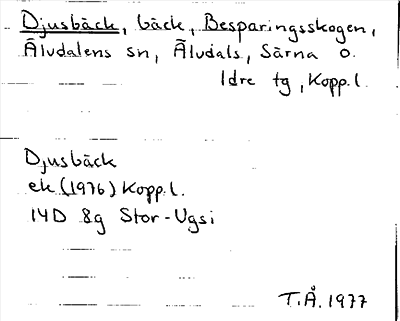 Djusbäck, bäck, Besparingsskogen,
Älvdalens sn, Älvdals, Särna o.
Idre tg, Kopp.l.
Djusbäck
ek (1976) Kopp.l.
14D 8g Stor-Ugsi
T.Å. 1977